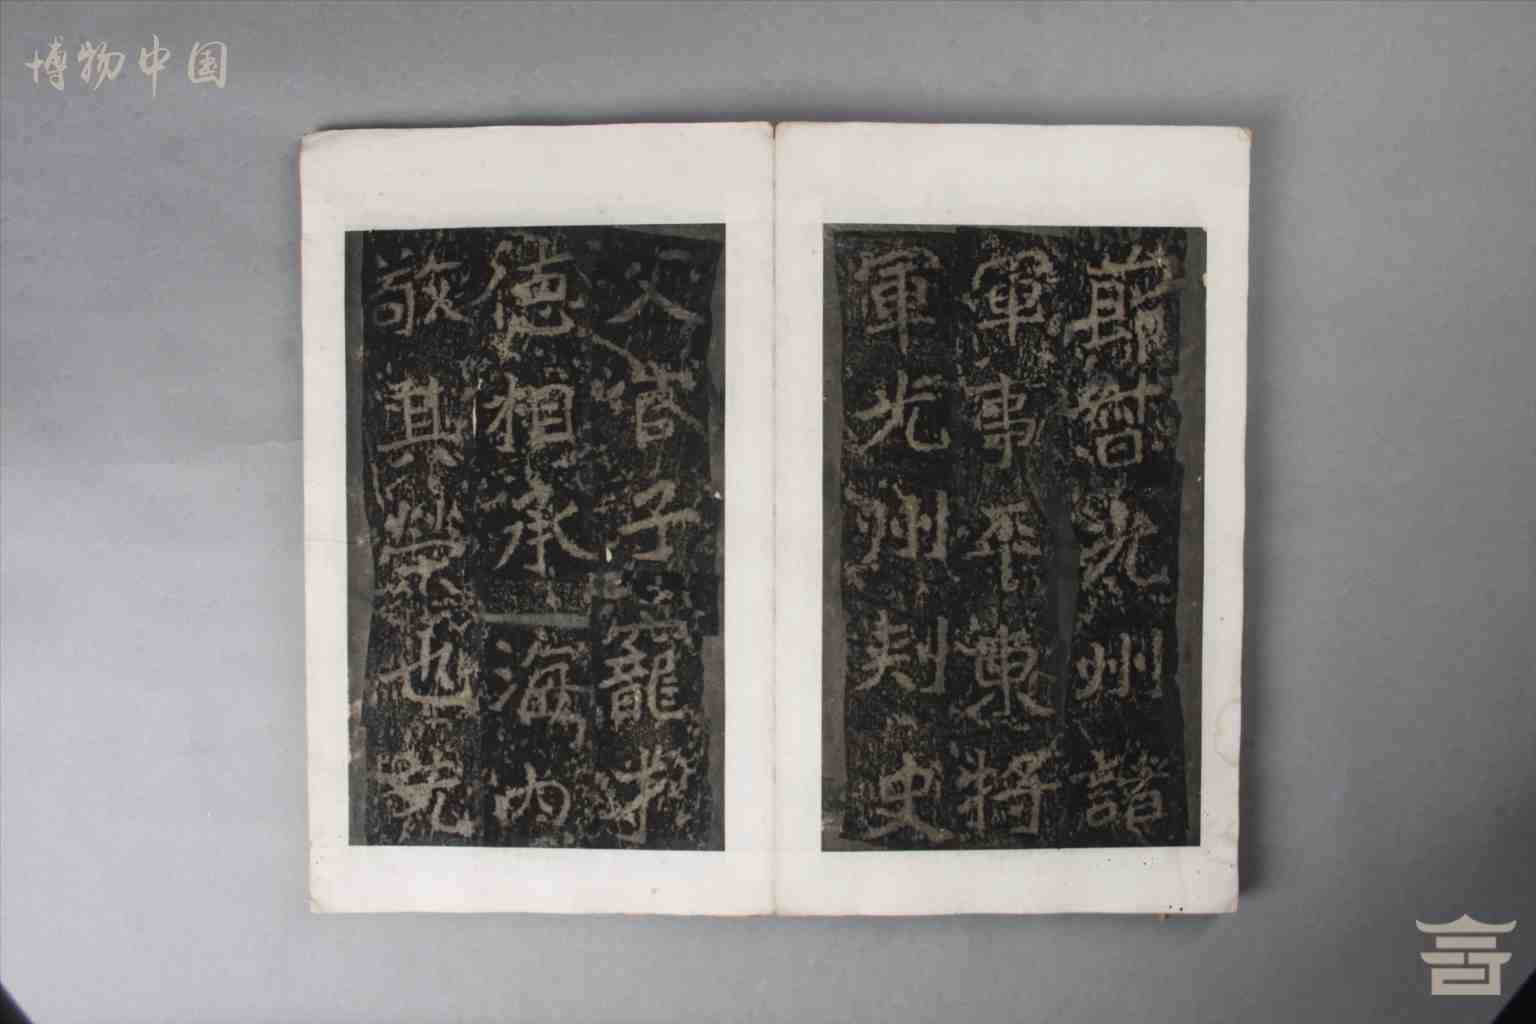 博物中国
節督光州諸
軍事平東將
軍光州刺史
父官子寵才
德相承海內
敬其榮也先